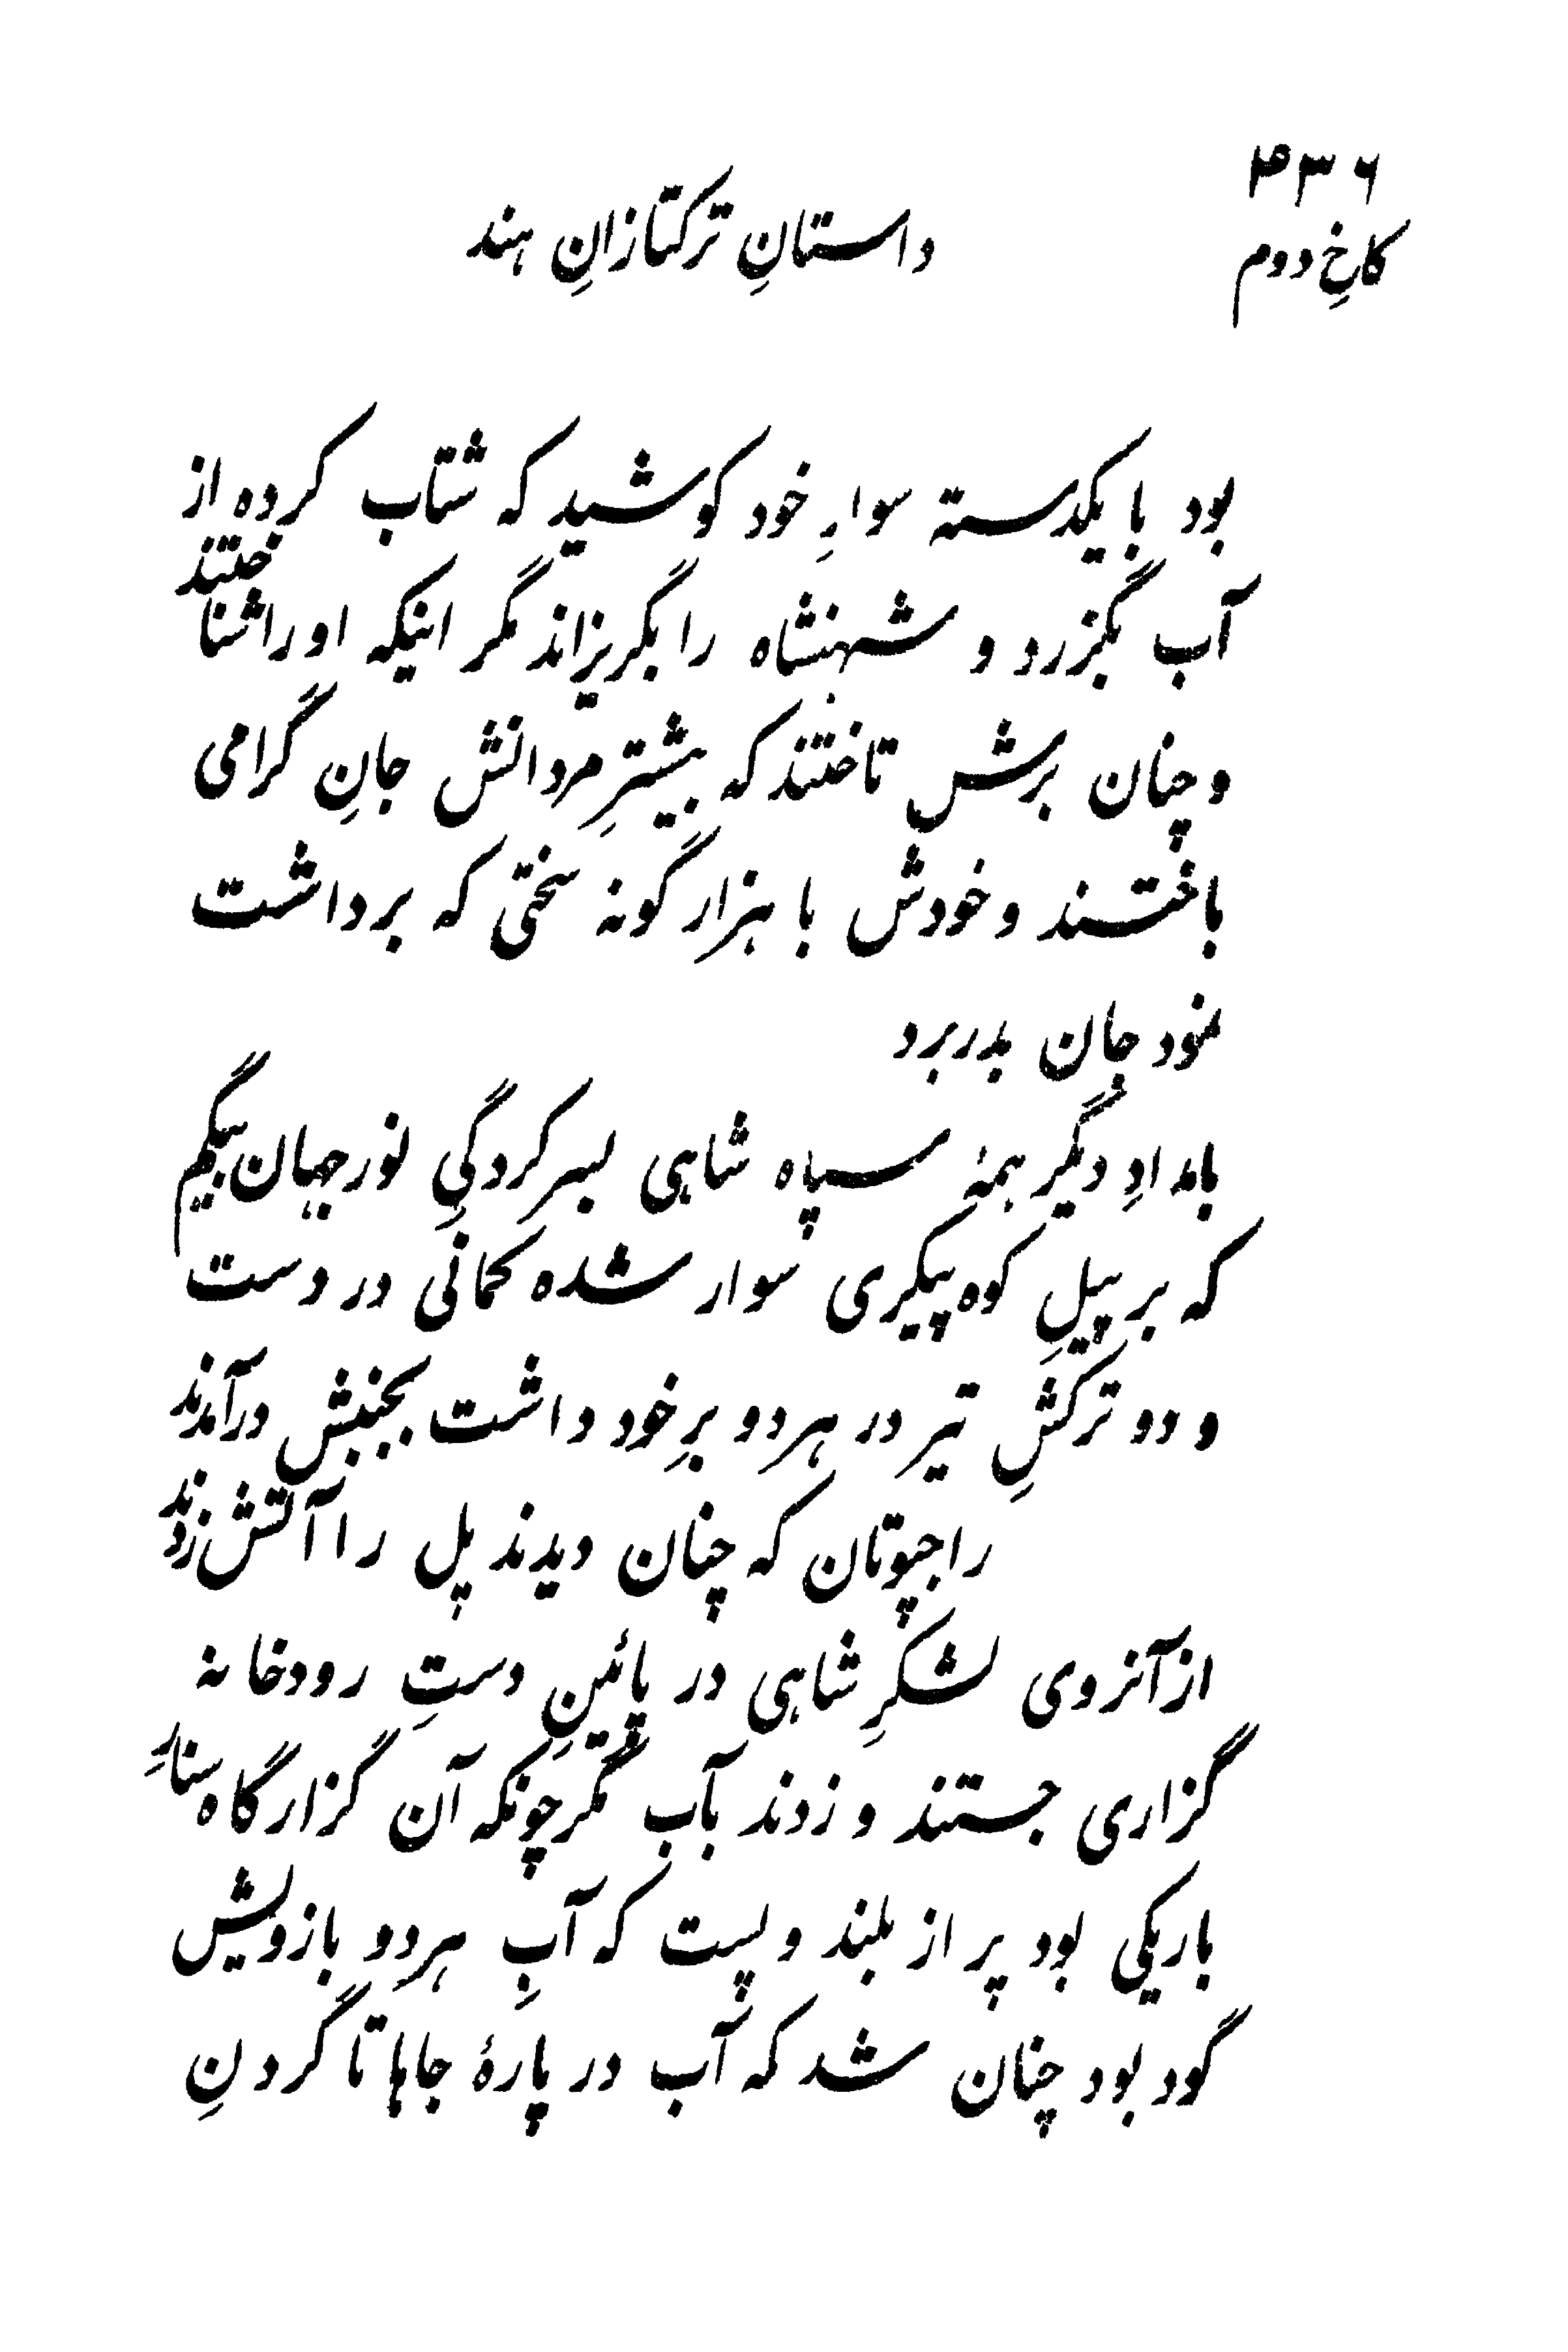 ۴۳۶
کاخِ دوم
داستانِ ترکتازانِ هند
بود با یکدسته سوارِ خود کوشید که شتاب کرده از
آب بگزرد و شهنشاه را بگریزاند مگر اینکه او را شناختند
و چنان برش تاختند که بیشترِ مردانش جانِ گرامی
باختند و خودش با هزار گونه سختی که برداشت
نمود جان بدر برد
بامدادِ دیگر همهٔ سپاه شاهی بسرکردگیِ نورجهان بیگم
که بر پیلِ کوه پیکری سوار شده کمانی در دست
و دو ترکشِ تیر در هر دو برِ خود داشت بجنبش درآمدند
راجپوتان که چنان دیدند پل را آتش زدند
از آنروی لشکرِ شاهی در پائینِ دستِ رودخانه
گزاری جستند و زدند بآب مگر چونکه آن گزارگاه سنارِ
باریکی بود پر از بلند و پست که آبِ هر دو بازویش
گود بود چنان شد که آب در پارهٔ جاها تا گردنِ